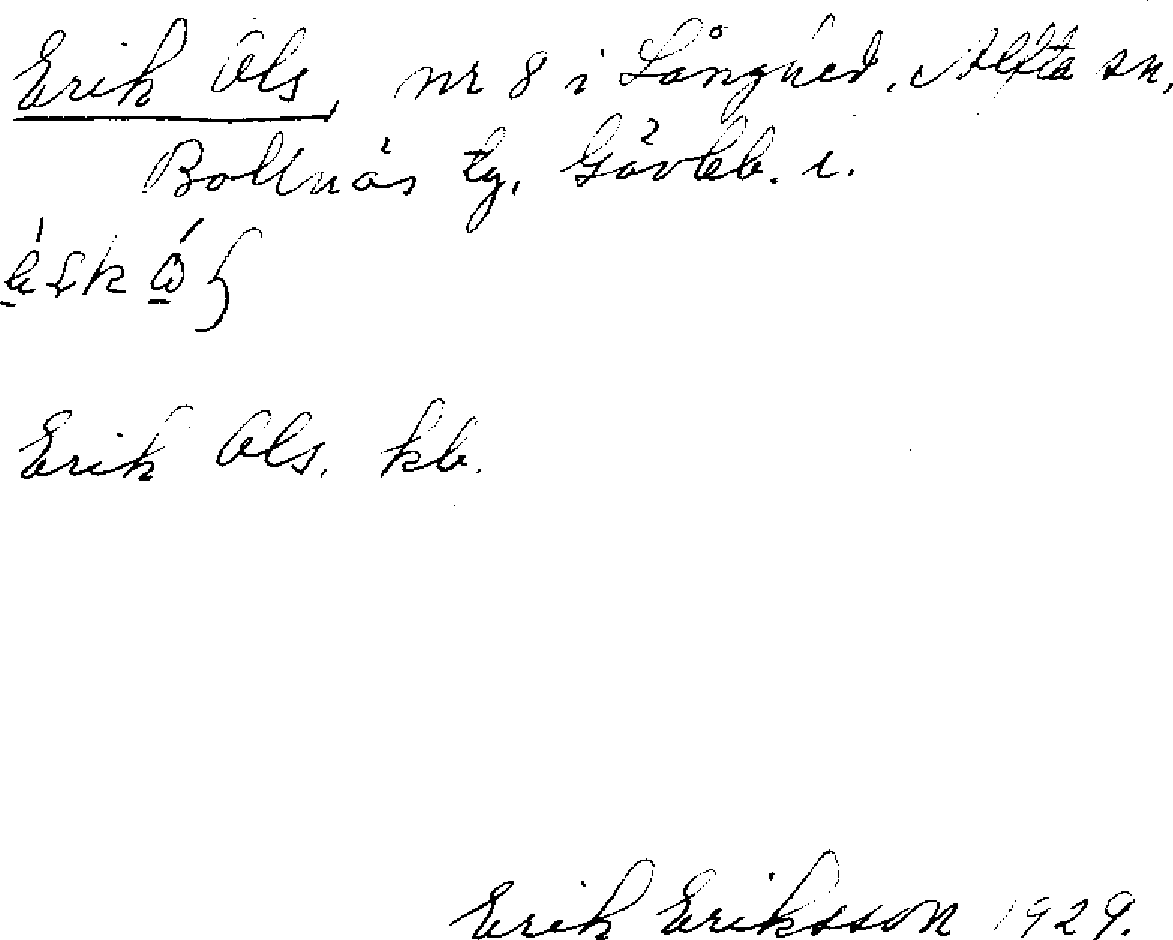 Erik Ols, nr 8 i Långhed, Alfta sn,
Bollnäs tg, Gävleb. l.
Erik Ols. kb.
Erik Eriksson 1929.